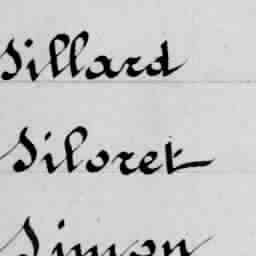 Sillard
Siloret
Simon